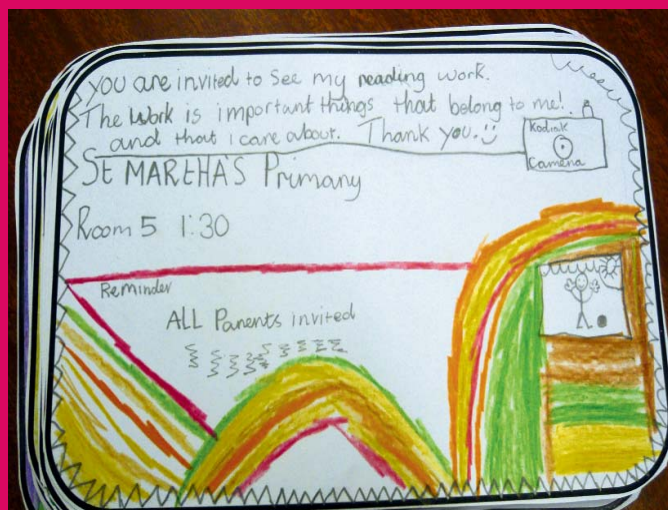 you are invited to see my reading work.
The work is important things that belong to me!
and that i care about. Thank you.
Kodiak
Camena
St MARTHA'S Primany
Room 5 1:30
Reminder
ALL Parents invited